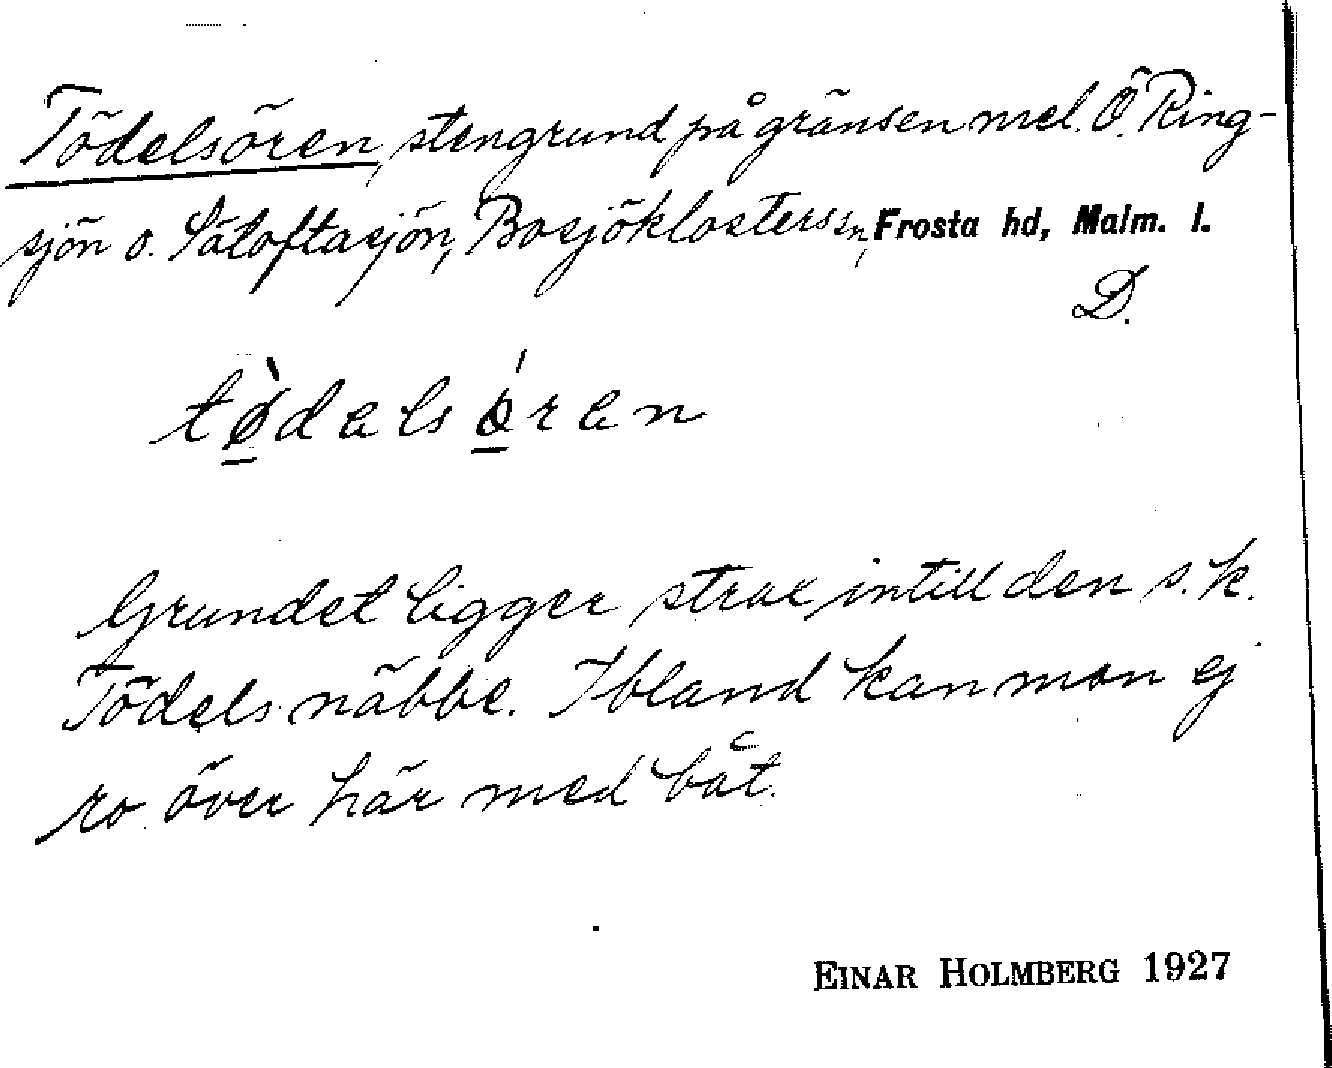 Tödelsören, stengrund på gränsen mel. Ö. Ring-
sjön o. Sätoftasjön, Bosjöklosters sn, Frosta hd, Malm. l.
D.
tø̀dalsǿran
Grundet ligger strax intill den s.k.
Tödels näbbe. Ibland kan man ej
ro över här med båt.
EINAR HOLMBERG 1927